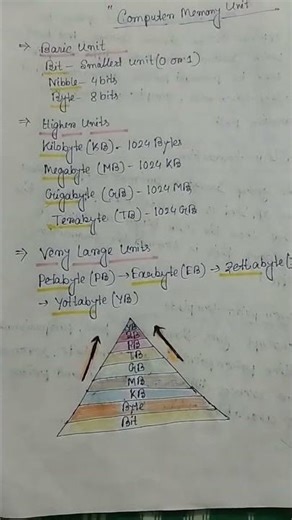 "Computer Memory Unit
⇒ Basic Unit
Bit - Smallest unit (0 or 1)
Nibble - 4 bits
Byte - 8 bits
⇒ Higher Units
Kilobyte (KB) - 1024 Bytes
Megabyte (MB) - 1024 KB
Gigabyte (GB) - 1024 MB
Terabyte (TB) - 1024 GB
⇒ Very Large Units
Petabyte (PB) → Exabyte (EB) → Zettabyte (
→ Yottabyte (YB)
YB
PB
TB
GB
MB
KB
Byte
Bit